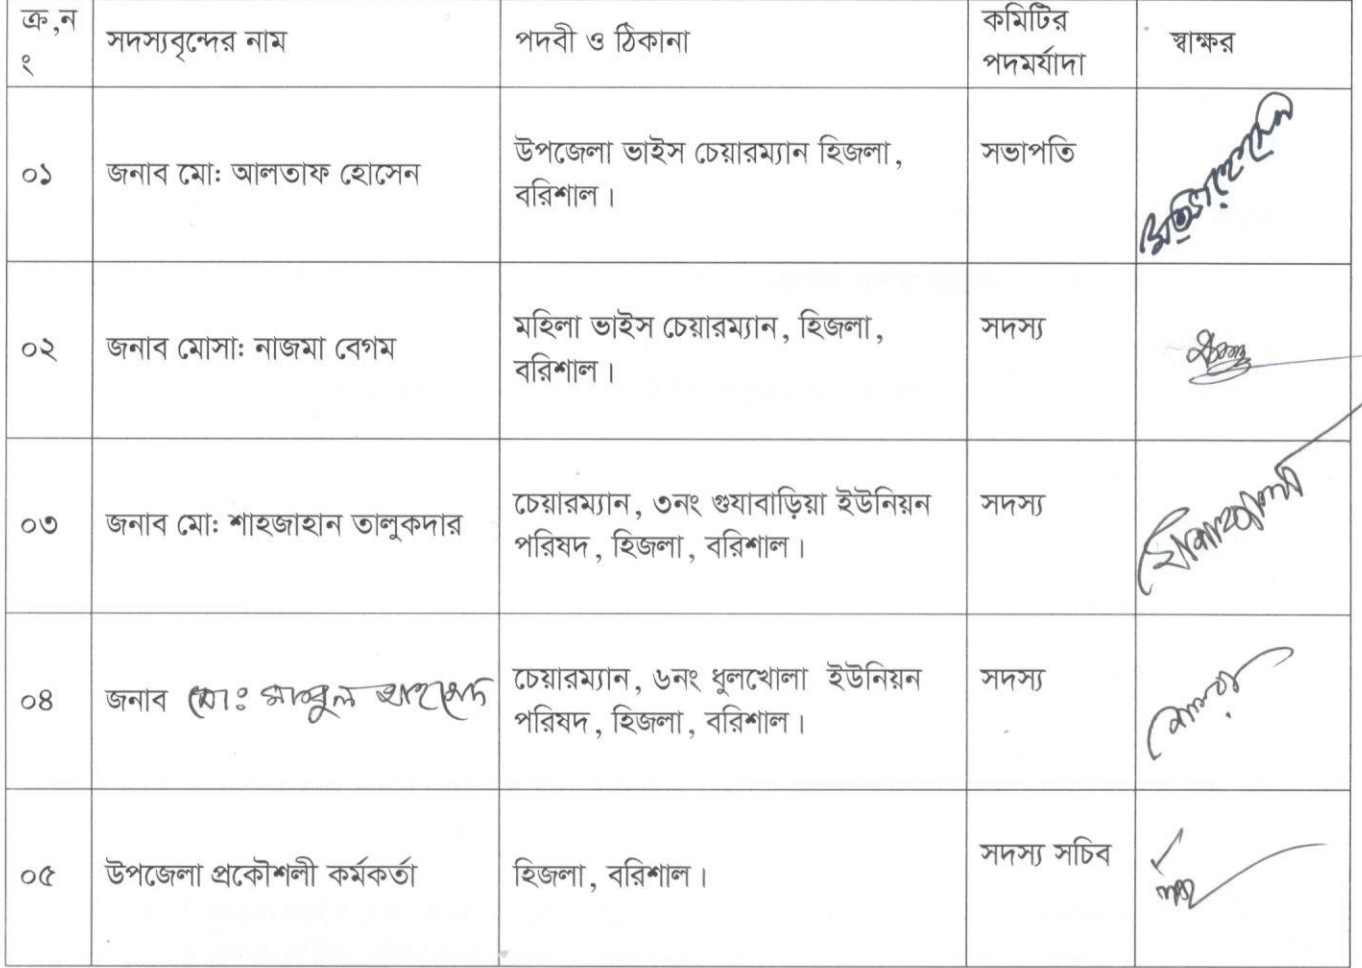 ক্র,ন
ং
সদস্যবৃন্দের নাম
পদবী ও ঠিকানা
কমিটির
পদমর্যাদা
স্বাক্ষর
০১
জনাব মো: আলতাফ হোসেন
উপজেলা ভাইস চেয়ারম্যান হিজলা,
বরিশাল।
সভাপতি
০২
জনাব মোসা: নাজমা বেগম
মহিলা ভাইস চেয়ারম্যান, হিজলা,
বরিশাল।
সদস্য
০৩
জনাব মো: শাহজাহান তালুকদার
চেয়ারম্যান, ৩নং গুযাবাড়িয়া ইউনিয়ন
পরিষদ, হিজলা, বরিশাল।
সদস্য
০৪
জনাব মো:
চেয়ারম্যান, ৬নং ধুলখোলা ইউনিয়ন
পরিষদ, হিজলা, বরিশাল।
সদস্য
০৫
উপজেলা প্রকৌশলী কর্মকর্তা
হিজলা, বরিশাল।
সদস্য সচিব